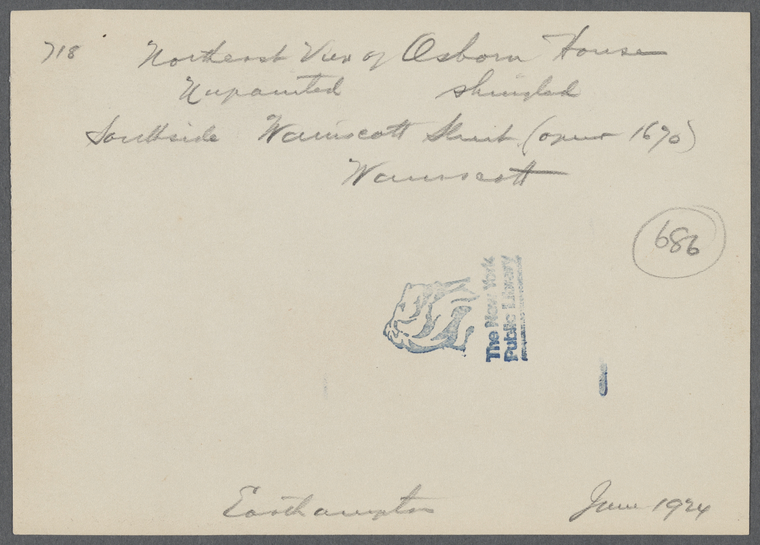 718 Northeast View of Osborn House
Unpainted shingled
Southside Wainscott Street (opus 1670)
Wainscott
686
The New York
Public Library
Easthampton June 1924